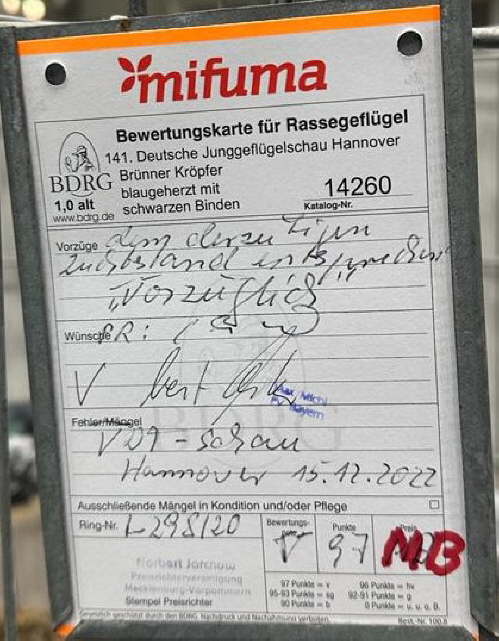 mifuma
Bewertungskarte für Rassegeflügel
141. Deutsche Junggeflügelschau Hannover
BDRG
Brünner Kröpfer
blaugeherzt mit
14260
1,0 alt
schwarzen Binden
Katalog-Nr.
www.bdrg.de
Vorzüge dem derzeitigen
Zuchtstand entsprechend
"Vorzüglich"
Wünsche PR:
V
Fehler/Mängel
VDT-Schau
Hannover 15.12.2022
Ausschließende Mängel in Kondition und/oder Pflege
Ring-Nr. L-298/20
Bewertungs- V
Punkte 97
Preis MB
Norbert Jarchow
Preisrichtervereinigung
Mecklenburg-Vorpommern
Stempel Preisrichter
97 Punkte = v 96 Punkte = hv
95-93 Punkte = sg 92-91 Punkte = g
90 Punkte = b 0 Punkte = u. o. B.
Gesetzlich geschützt durch den BDRG. Nachdruck und Nachahmung verboten. Best.-Nr. 100.8